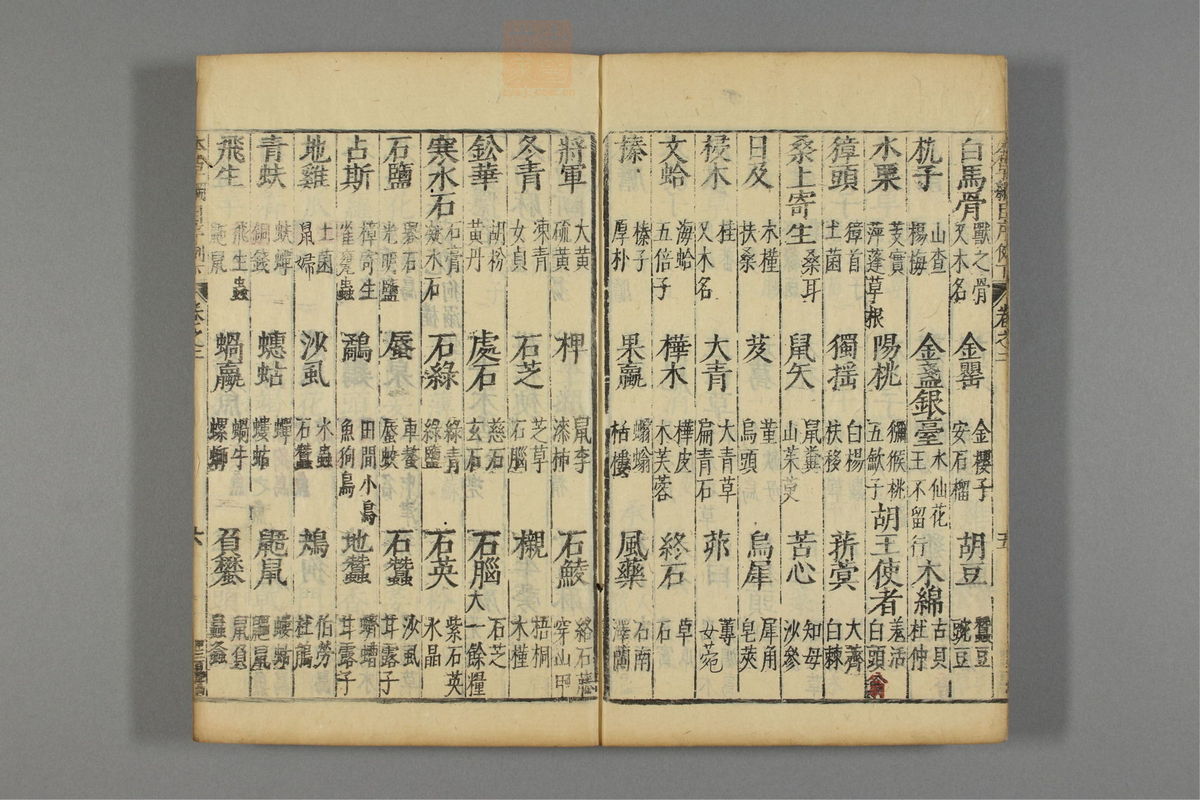 白馬骨 獸之骨 又木名 金罌 金櫻子 安石榴 胡豆 蠶豆 豌豆
杭子 山查 楊梅 金盞銀臺 水仙花 王不留行 木綿 古貝 杜仲
水栗 芰實 萍蓬草根 陽桃 獼猴桃 五斂子 胡王使者 羗活 白頭公
獐頭 獐首 土菌 獨搖 白楊 扶栘 菥蓂 大薺 白棘
桑上寄生 桑耳 鼠矢 鼠糞 山茱萸 苦心 知母 沙參
日及 木槿 扶桑 芨 菫 烏頭 烏犀 犀角 皂莢
桂 又木名 大青 大青草 扁青石 茆 蓴 女菀
文蛤 海蛤 五倍子 樺木 樺皮 木芙蓉 終石 草 石
榛 榛子 厚朴 果蠃 蠮螉 栝樓 風藥 石南 澤蘭
將軍 大黃 硫黃 柙 鼠李 漆柿 石鯪 絡石 穿山甲
冬青 凍青 女貞 石芝 芝草 石腦 櫬 梧桐 木槿
鈆華 胡粉 黃丹 處石 慈石 玄石 石腦 石芝 太一餘糧
寒水石 石膏 凝水石 石綠 綠青 綠鹽 石英 紫石英 水晶
石鹽 礜石 光明鹽 蜃 車螯 蜃蛟 石蠶 沙虱 甘露子
占斯 樟寄生 雀甕蟲 鷸 田間小鳥 魚狗鳥 地蠶 蠐螬 甘露子
地雞 土菌 鼠婦 沙虱 水蟲 石蠶 鴂 伯勞 杜鵑
青蚨 蚨蟬 銅錢 蟪蛄 蟬 螻蛄 鼯鼠 螻蛄 鼯鼠
飛生 飛生蟲 鼯鼠 蝸蠃 蝸牛 螺螄 負蠜 鼠負 蟲螽